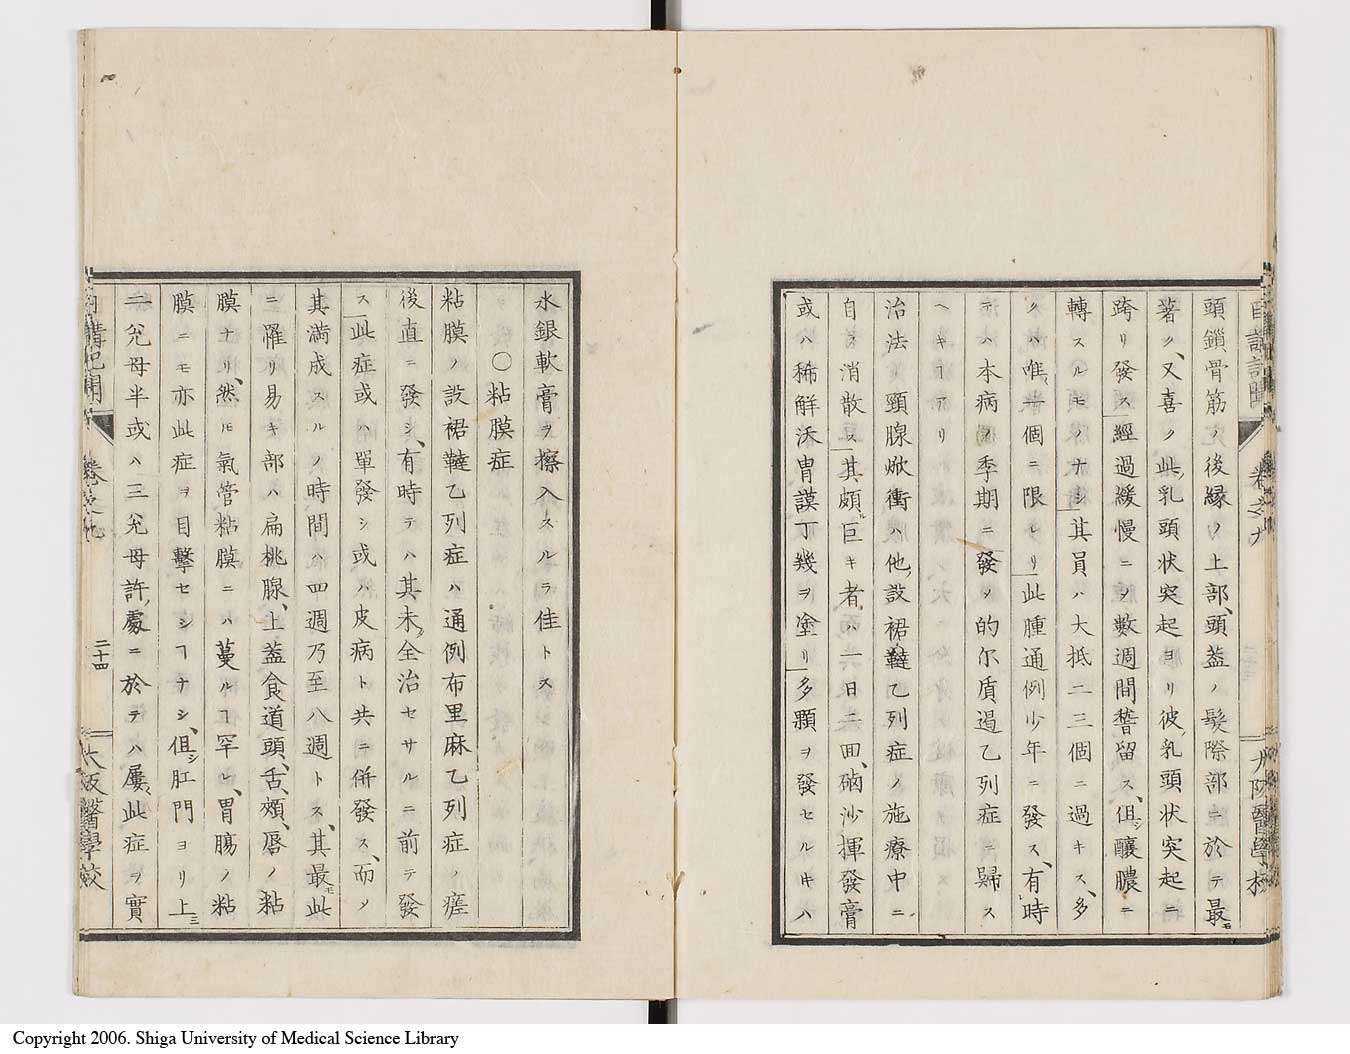 頭鎖骨筋ノ後縁ノ上部、頭蓋ノ髮際部ニ於テ最モ
著ク、又喜ク此乳頭状突起ヨリ彼乳頭状突起ニ
跨リ發ス經過緩慢ニシテ數週間稽留ス、但シ釀膿ニ
轉スルモノナシ其員ハ大抵二三個ニ過キス、多
クハ唯一個ニ限レリ此腫通例少年ニ發ス、有時
テハ本病ノ季期ニ發シ的尓質遏乙列症ニ歸ス
ヘキヿアリ
治法 頸腺焮衝ハ他設裙韃乙列症ノ施療中ニ
自ラ消散ス其頗ル巨キ者ハ一日二囬、硇沙揮發膏
或ハ稀鮮沃胄謨丁幾ヲ塗リ多顆ヲ發セルキハ
水銀軟膏ヲ擦入スルヲ佳トス
〇粘膜症
粘膜ノ設裙韃乙列症ハ通例布里麻乙列症ノ瘥
後直ニ發シ、有時テハ其未全治セサルニ前テ發
ス此症或ハ單發シ或ハ皮病ト共ニ併發ス、而シテ
其満成スルノ時間ハ四週乃至八週トス、其最モ此
ニ罹リ易キ部ハ扁桃腺、上蓋食道頭、舌、頰、唇ノ粘
膜ナリ、然ルモ氣管粘膜ニハ蔓ルヿ罕レ、胃膓ノ粘
膜ニモ亦此症ヲ目擊セシヿナシ、但シ肛門ヨリ上ミ
一寽母半或ハ三寽母許ノ處ニ於テハ屢此症ヲ實
二十四
大阪醫學校